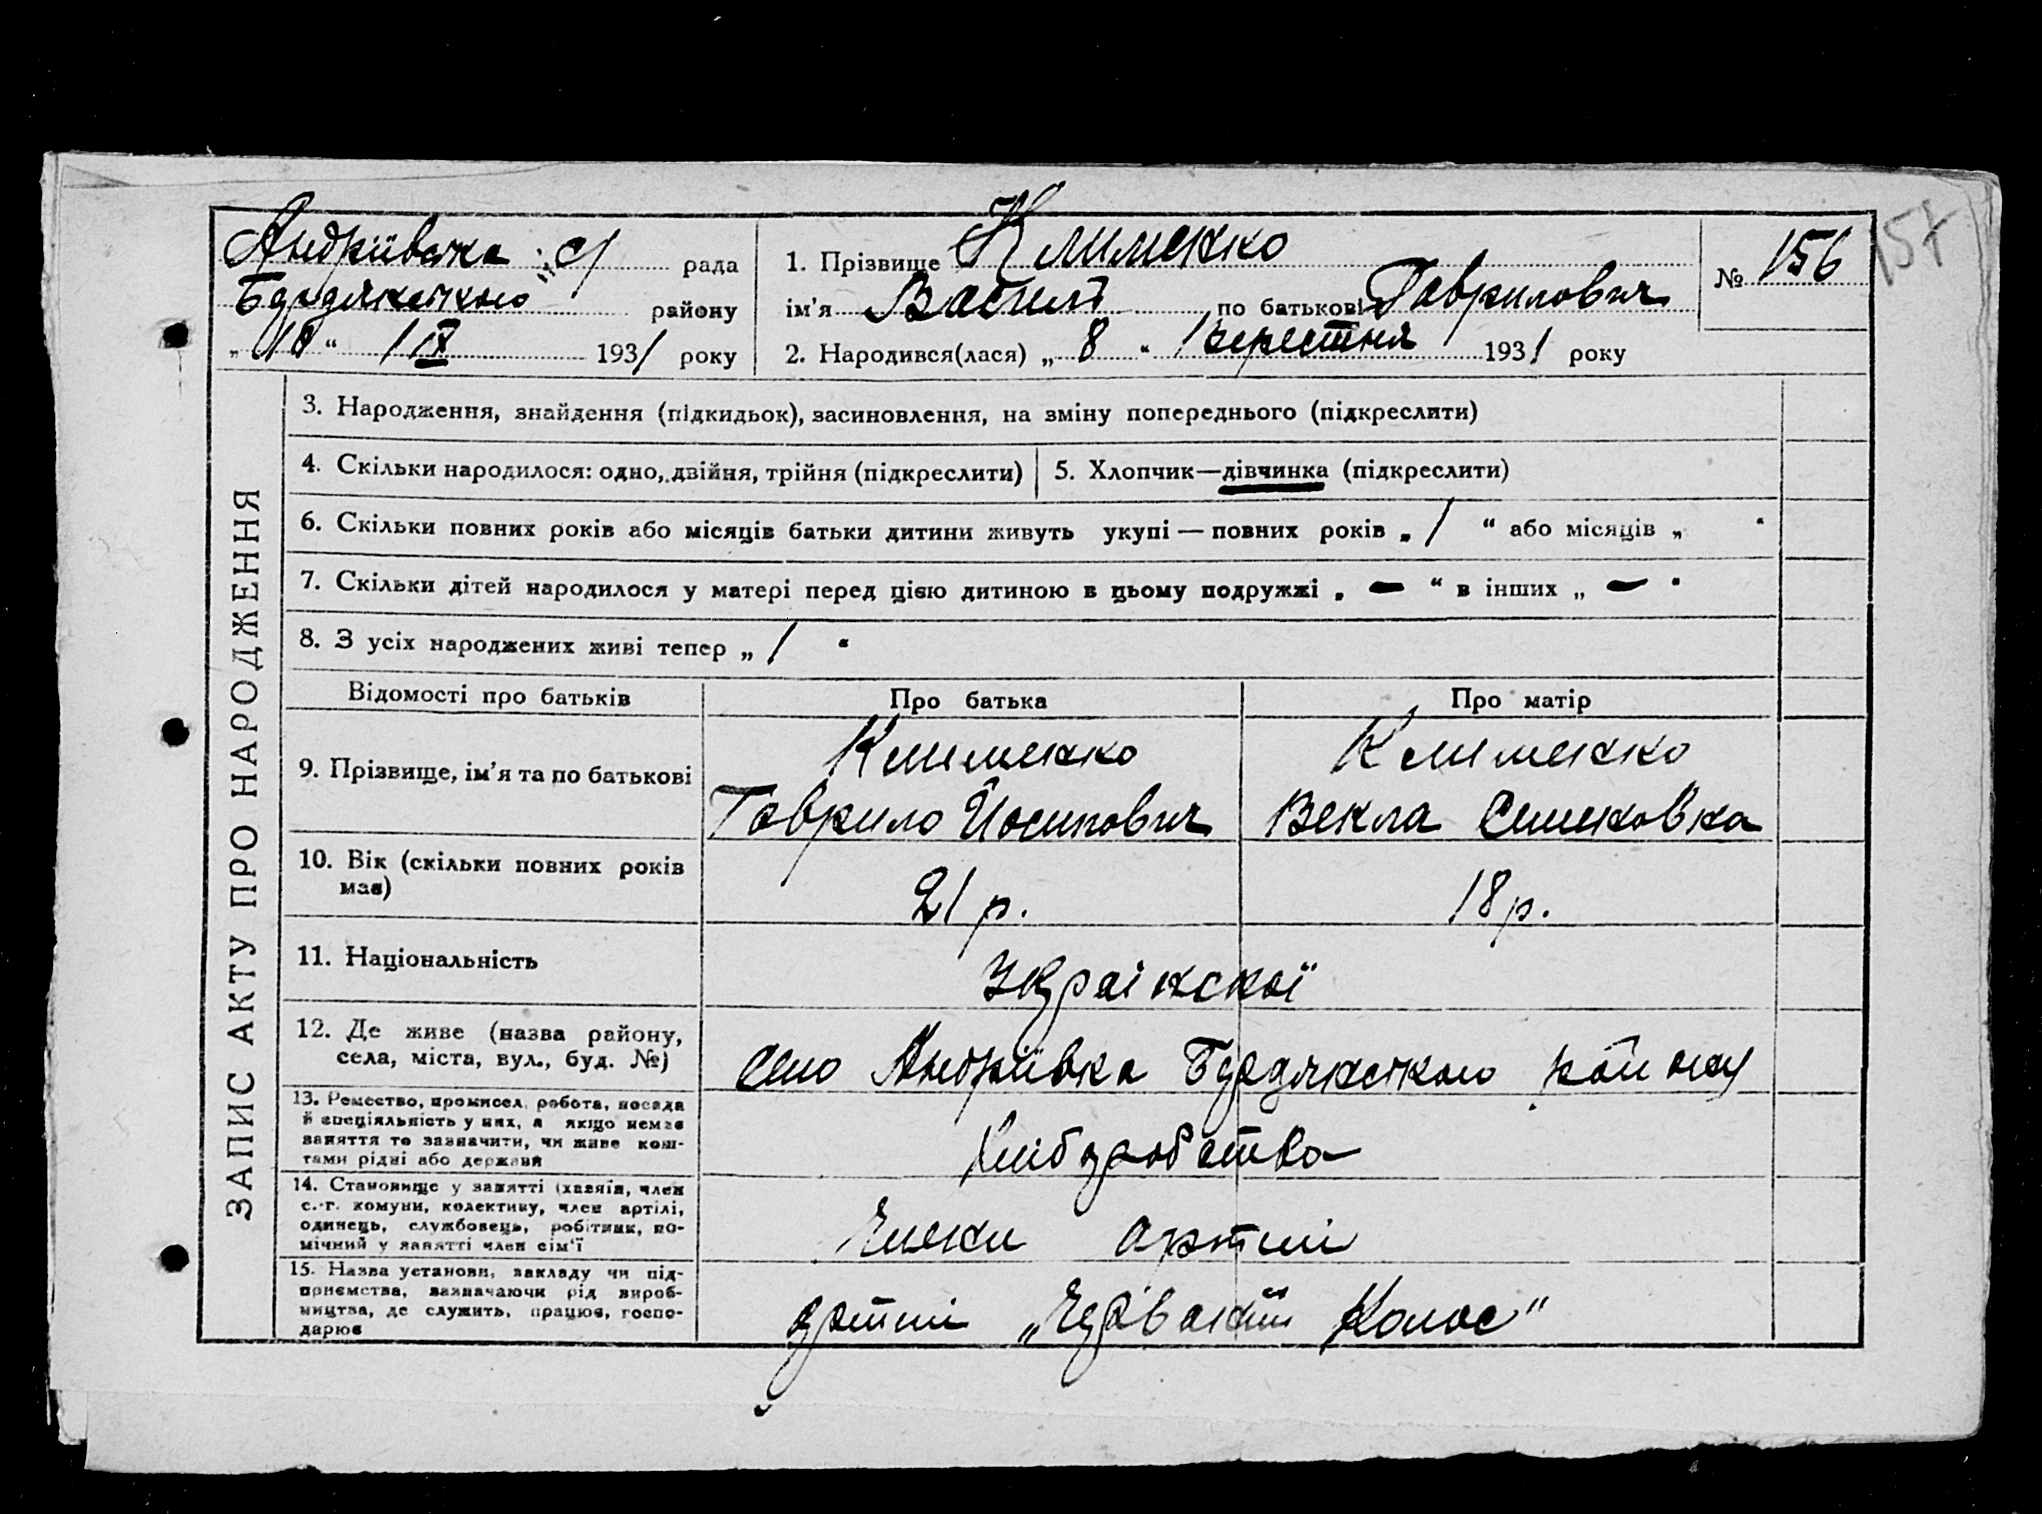 Андріївська с/ рада
Бердянського району
„ 18 “ / IX 1931 року
1. Прізвище Клименко
ім’я Василь по батькові Гаврилович
2. Народився(лася) „ 8 “ Вересня 1931 року
№ 156
157
ЗАПИС АКТУ ПРО НАРОДЖЕННЯ
3. Народження, знайдення (підкидьок), засиновлення, на зміну попереднього (підкреслити)
4. Скільки народилося: одно, двійня, трійня (підкреслити)
5. Хлопчик—дівчинка (підкреслити)
6. Скільки повних років або місяців батьки дитини живуть укупі — повних років „ 1 “ або місяців „ “
7. Скільки дітей народилося у матері перед цією дитиною в цьому подружжі „ — “ в інших „ — “
8. З усіх народжених живі тепер „ 1 “
Відомості про батьків
Про батька
Про матір
9. Прізвище, ім’я та по батькові
Клименко
Гаврило Йосипович
Клименко
Векла Семеновна
10. Вік (скільки повних років
має)
21 р.
18 р.
11. Національність
Українскої
12. Де живе (назва району,
села, міста, вул., буд. №)
село Андріївка Бердянського району
13. Ремество, промисел, робота, посада
й спеціяльність у них, а якщо немає
заняття то зазначити, чи живе кош-
тами рідні або держави
Хлібаробства
14. Становище у занятті (хазяїн, член
с.-г. комуни, колективу, член артілі,
одинець, службовець, робітник, по-
мічний у занятті член сім’ї
Члени артілі
15. Назва установи, закладу чи під-
приємства, зазначаючи рід вироб-
ництва, де служить, працює, госпо-
дарює
артілі „Червоний Колос“